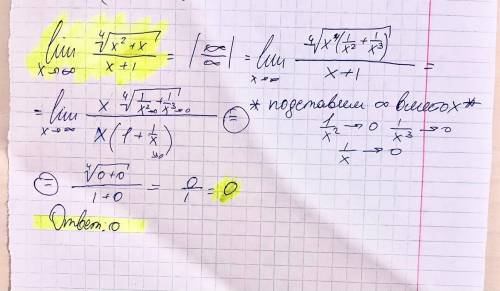 lim x→∞ ⁴√(x²+x) / (x+1) = |∞/∞| = lim x→∞ ⁴√(x⁴(1/x²+1/x³)) / (x+1) =
= lim x→∞ x ⁴√(1/x²→0 + 1/x³→0) / x(1+1/x→0) = * подставим ∞ вместо x *
1/x² → 0 1/x³ → 0
1/x → 0
= ⁴√(0+0) / (1+0) = 0/1 = 0
Ответ: 0